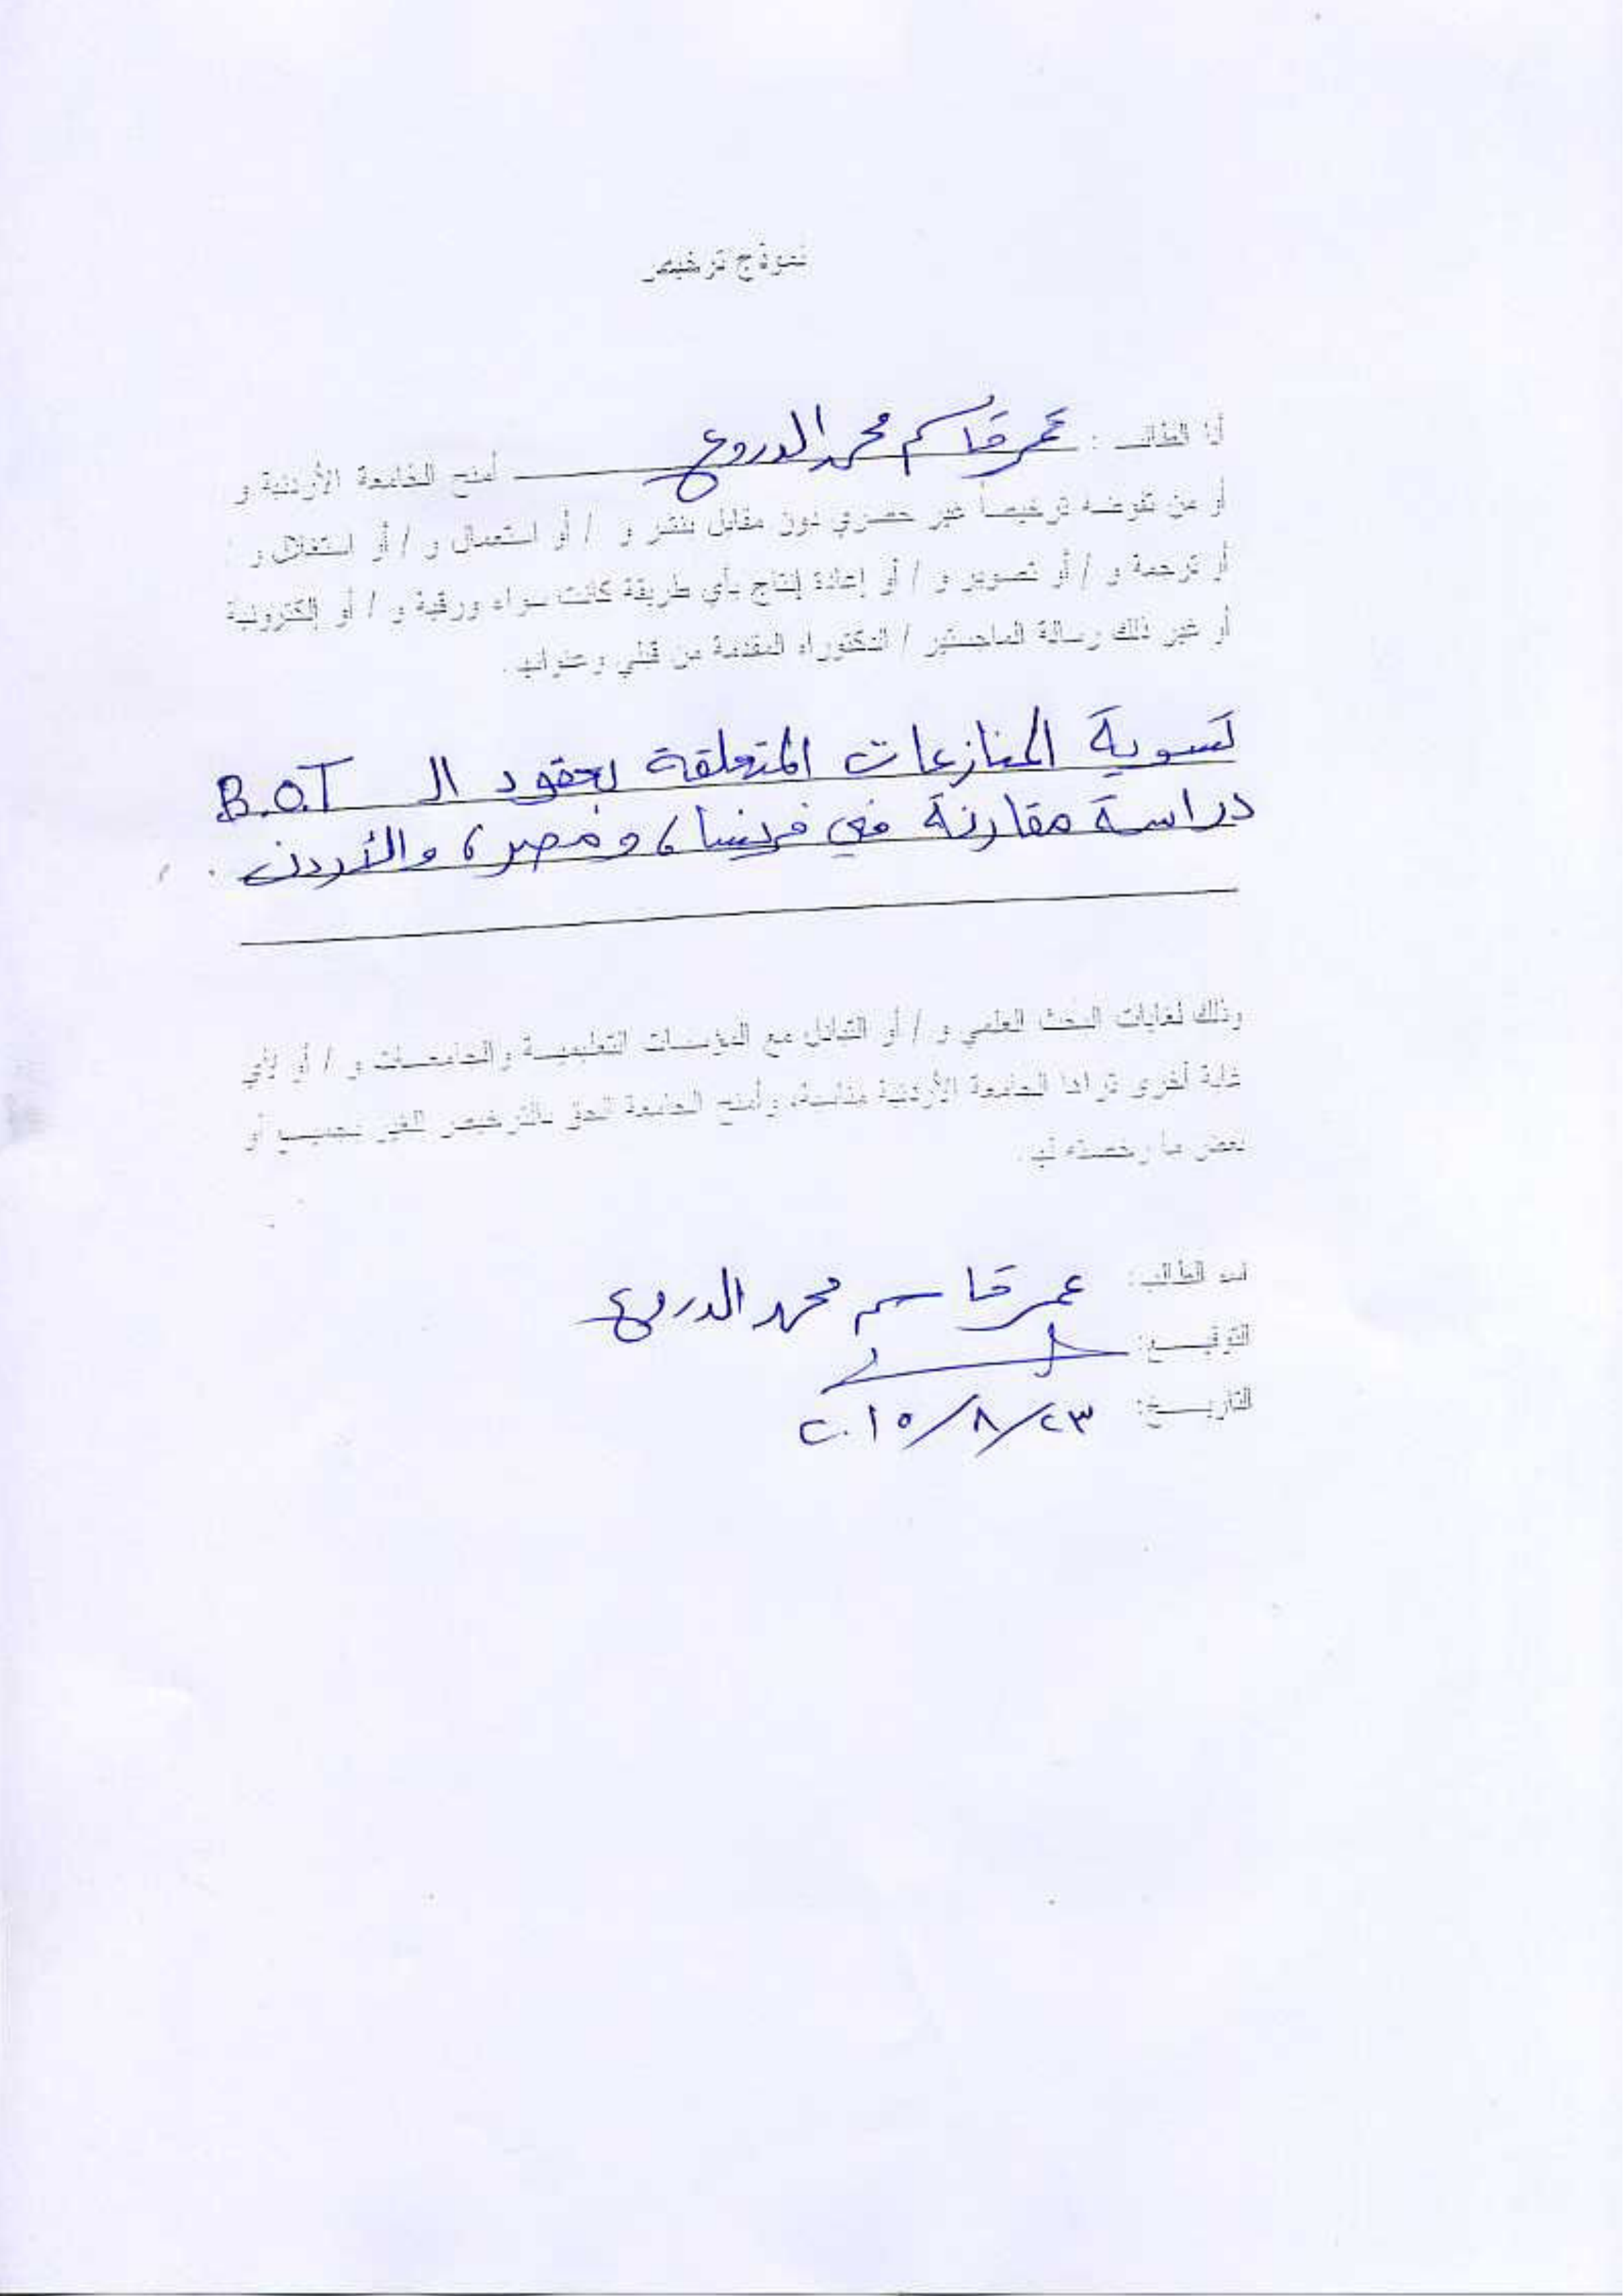 نموذج ترخيص
أنا الطالب : عمر قاسم محمد الدروع أمنح الجامعة الأردنية و
أو من تفوضه ترخيصاً غير حصري دون مقابل بنشر و / أو استعمال و / أو استغلال و
أو ترجمة و / أو تصوير و / أو إعادة إنتاج بأي طريقة كانت سواء ورقية و / أو إلكترونية
أو غير ذلك رسالة الماجستير / الدكتوراه المقدمة من قبلي وعنوانها.
تسوية المنازعات المتعلقة بعقود ال B.O.T
دراسة مقارنة في فرنسا، ومصر، والأردن.
وذلك لغايات البحث العلمي و / أو التبادل مع المؤسسات التعليمية والجامعات و / أو لأي
غاية أخرى تراها الجامعة الأردنية مناسبة، وأمنح الجامعة الحق بالترخيص للغير بجميع أو
بعض ما رخصته لها.
اسم الطالب: عمر قاسم محمد الدروع
التوقيع:
التاريخ: ٢٣/٨/٢٠١٥